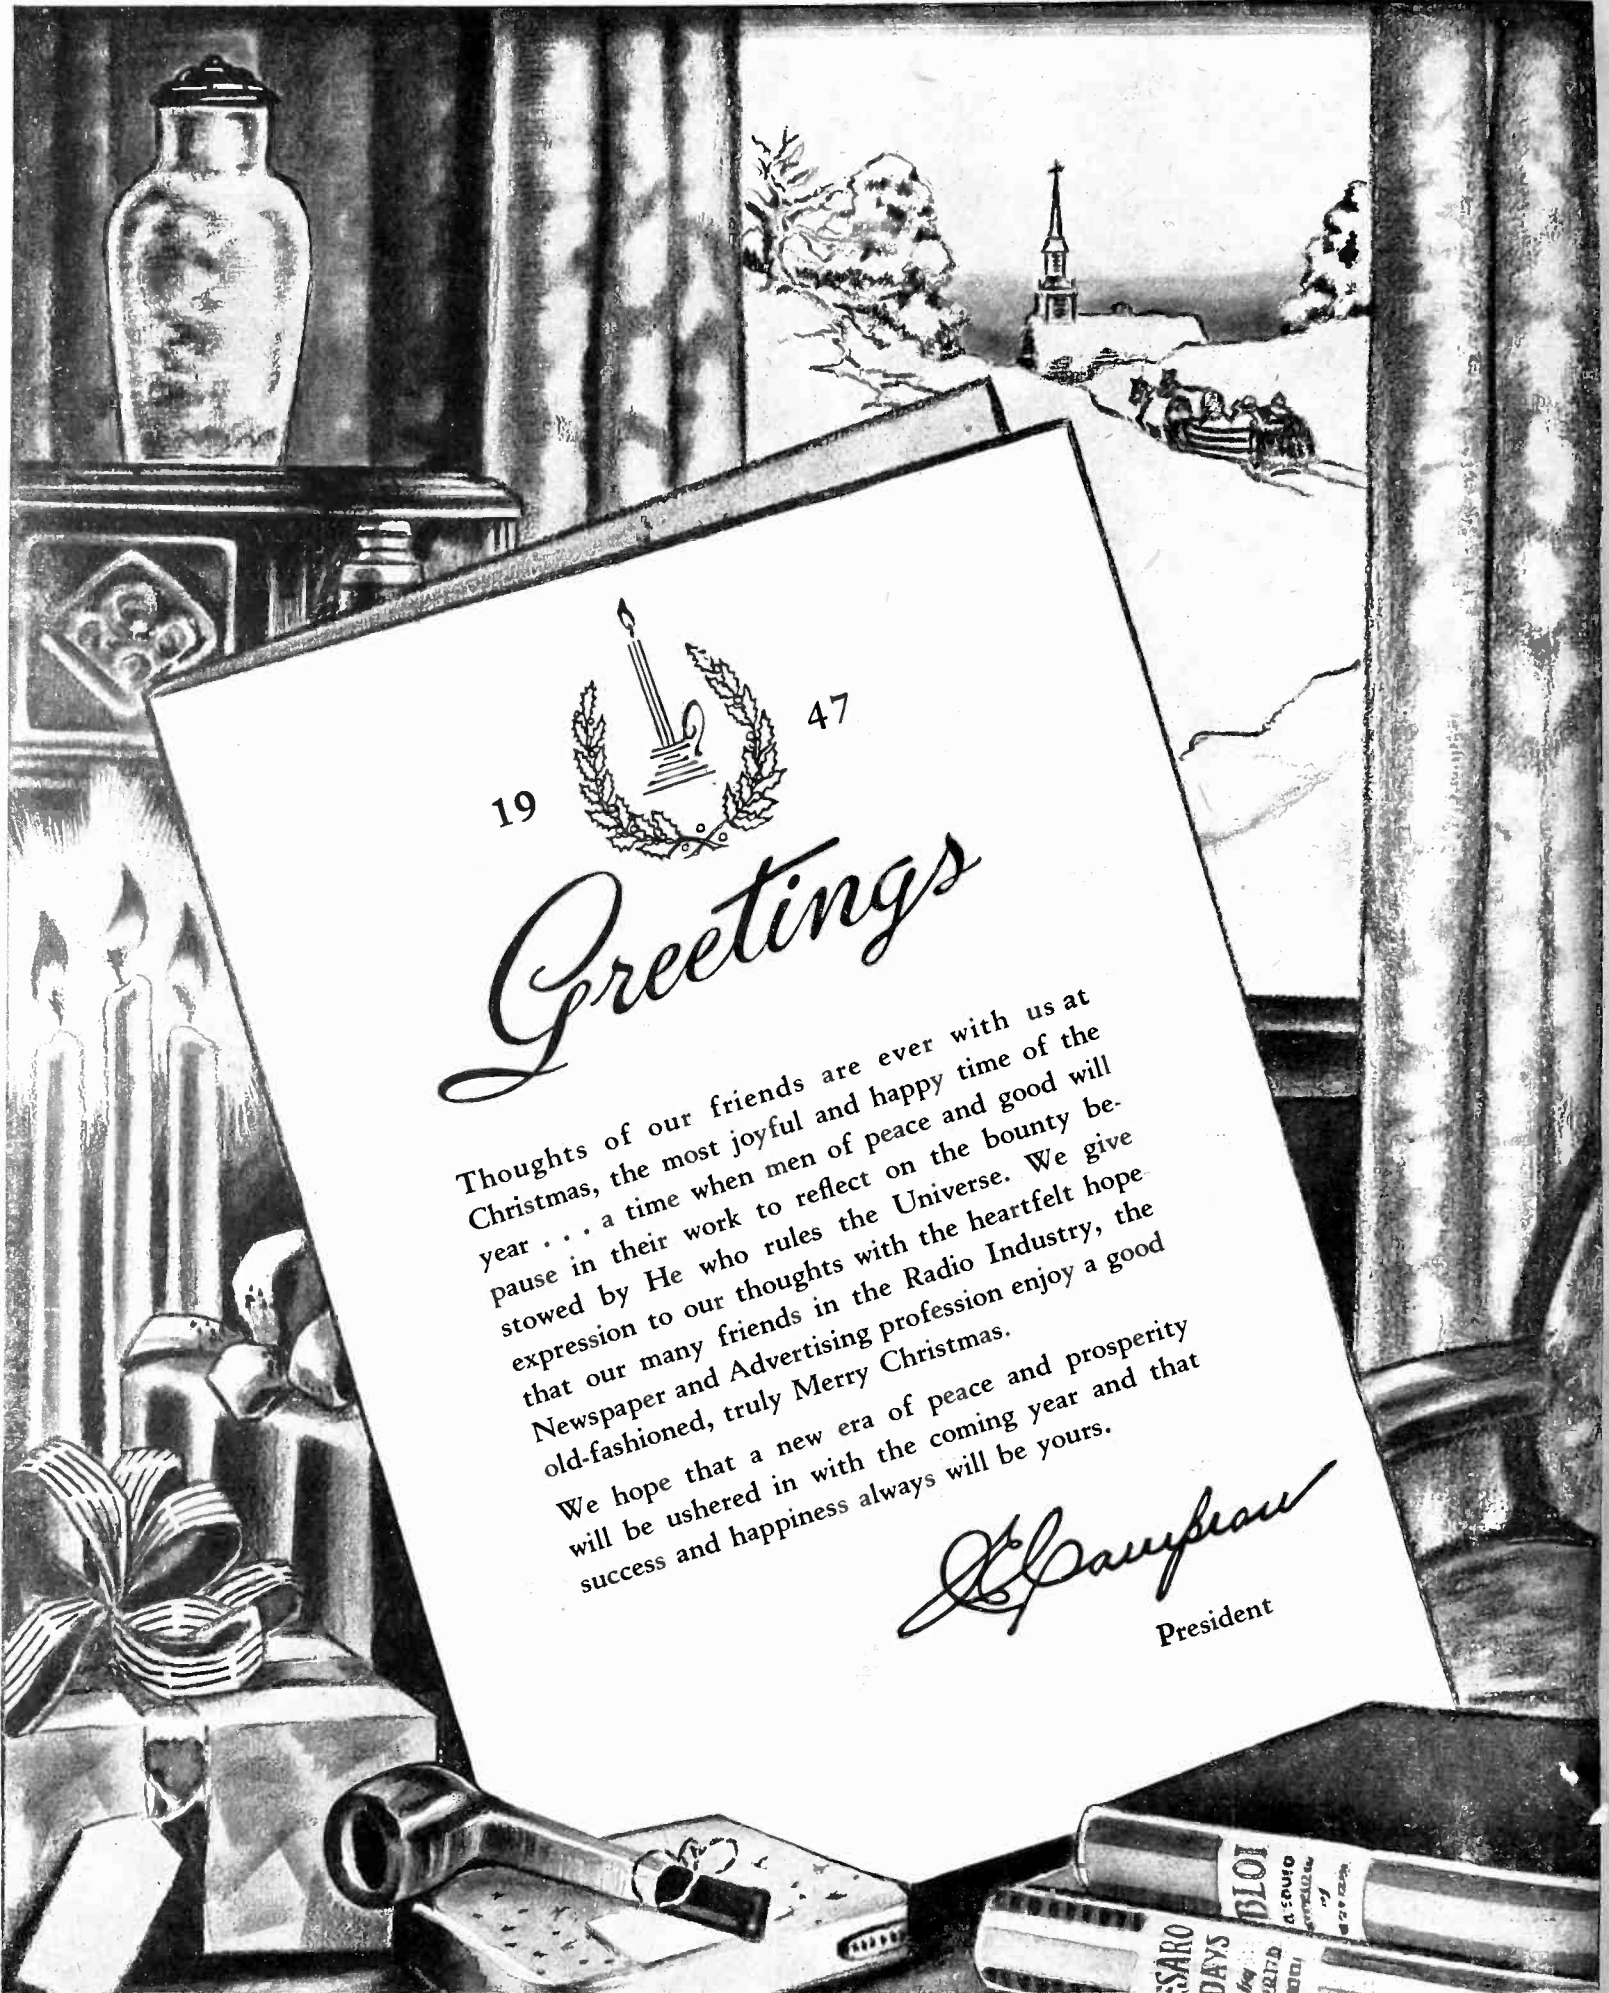 19 47
Greetings
Thoughts of our friends are ever with us at
Christmas, the most joyful and happy time of the
year . . . a time when men of peace and good will
pause in their work to reflect on the bounty be-
stowed by He who rules the Universe. We give
expression to our thoughts with the heartfelt hope
that our many friends in the Radio Industry, the
Newspaper and Advertising profession enjoy a good
old-fashioned, truly Merry Christmas.
We hope that a new era of peace and prosperity
will be ushered in with the coming year and that
success and happiness always will be yours.
Campeau
President
SARO
DAYS